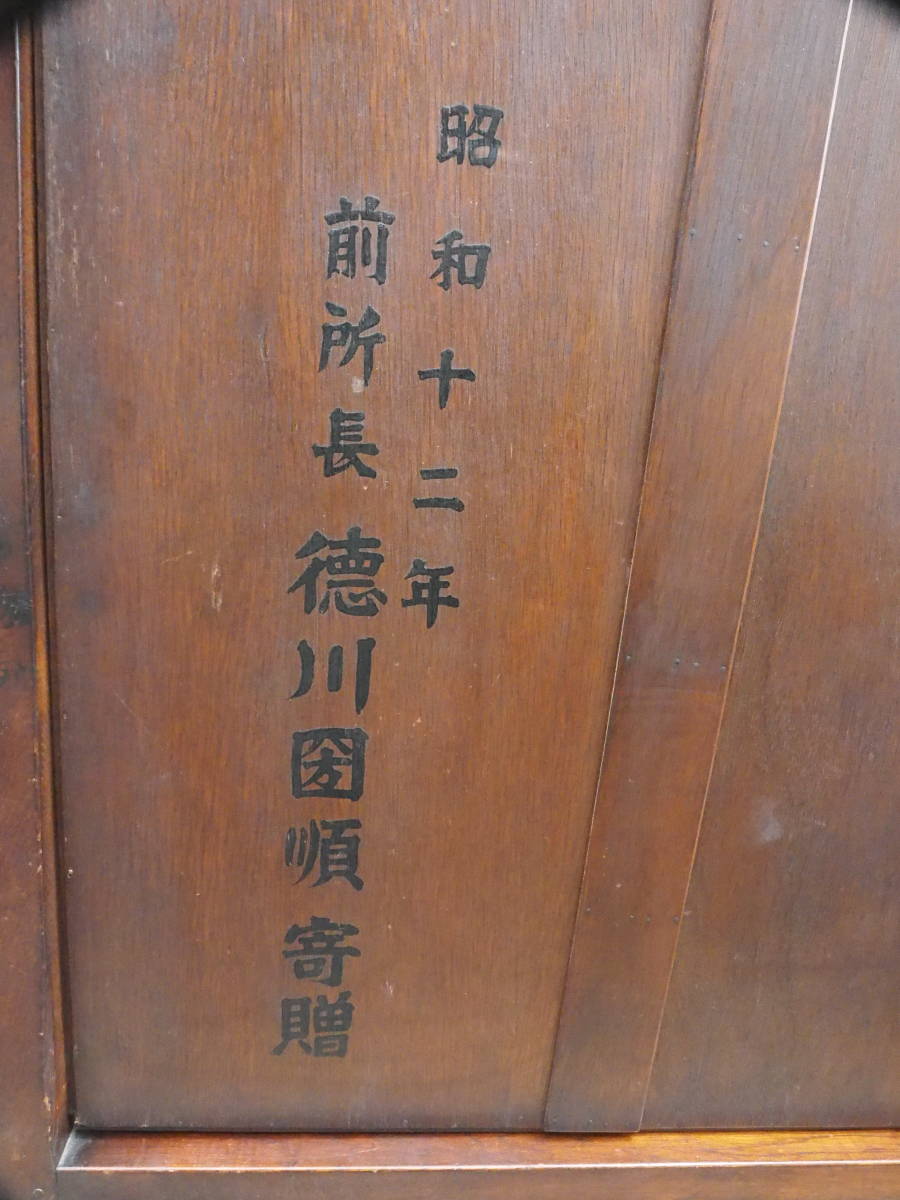 昭和十二年
前所長徳川圀順寄贈